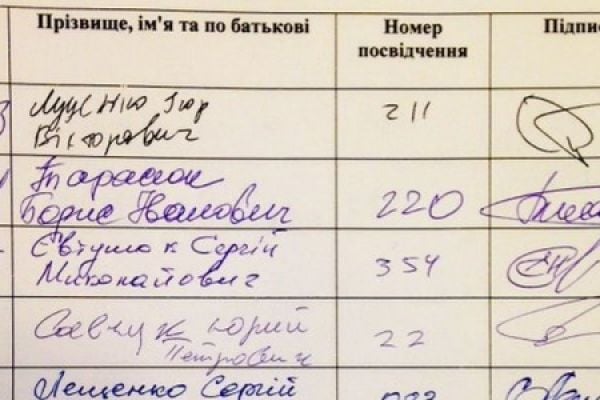 Прізвище, ім'я та по батькові Номер посвідчення Підпис
Луценко Ігор
Вікторович 211
Тарасюк
Борис Іванович 220
Євтушок Сергій
Миколайович 354
Савчук Юрій
Петрович 22
Лещенко Сергій